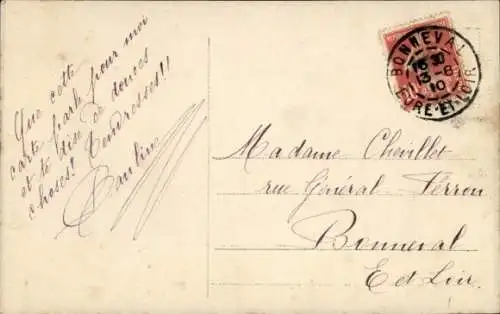 Que cette
carte parle pour moi
et te dise de douces
choses! Tendresses!!
Pauline
BONNEVAL
13-8
10
EURE-ET-LOIR
Madame Chevillet
rue Général Ferron
Bonneval
E et Loir